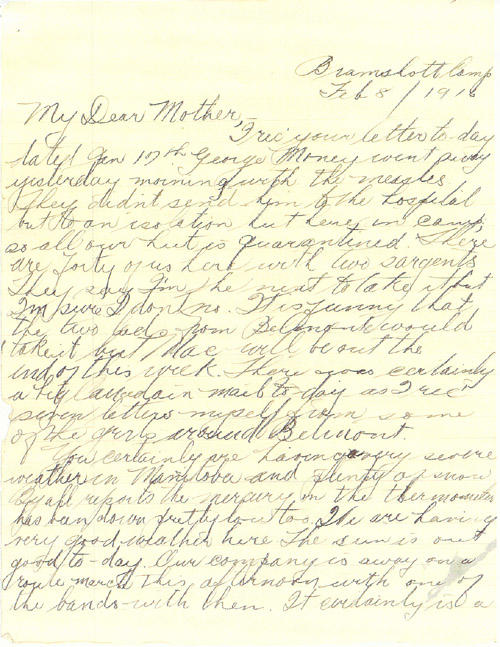 Bramshott Camp
Feb 8/1916
My Dear Mother,
I rec your letter to-day
dated Jan 17th George Money went away
yesterday morning with the measles
They didnt send him to the hospital
but to an isolation hut here in camp,
so all our hut is quarantined. There
are forty of us here with two sargents
They say I'm the next to take it but
I'm sure I don't no. It is funny that
the two lads from Belmont would
take it but Mac will be out the
end of this week. There was certainly
a big mail to-day as I rec
seven letters myself from some
of the girls around Belmont.
You certainly are having very severe
weather in Manitoba and plenty of snow
By all reports the mercury in the thermometer
has been down pretty low too. We are having
very good weather here The sun is out
good to-day. Our company is away on a
route march this afternoon with one of
the bands with them. It certainly is a